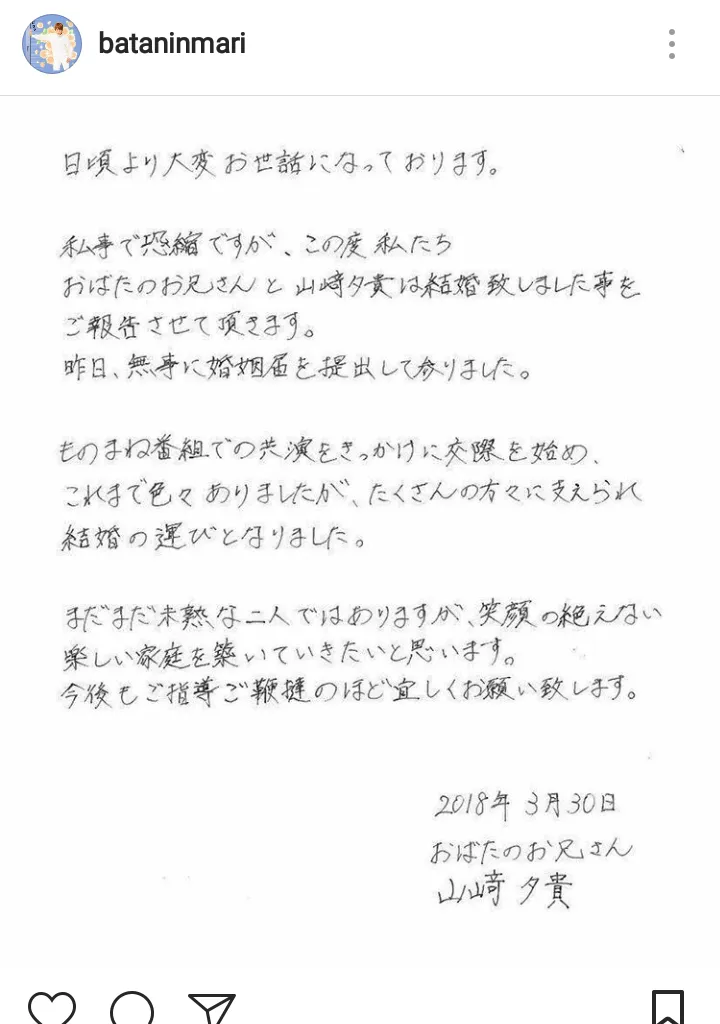 bataninmari
日頃より大変お世話になっております。
私事で恐縮ですが、この度 私たち
おばたのお兄さんと山﨑夕貴は結婚致しました事を
ご報告させて頂きます。
昨日、無事に婚姻届を提出して参りました。
ものまね番組での共演をきっかけに交際を始め、
これまで色々ありましたが、たくさんの方々に支えられ
結婚の運びとなりました。
まだまだ未熟な二人ではありますが、笑顔の絶えない
楽しい家庭を築いていきたいと思います。
今後もご指導ご鞭撻のほど宜しくお願い致します。
2018年 3月30日
おばたのお兄さん
山﨑 夕貴